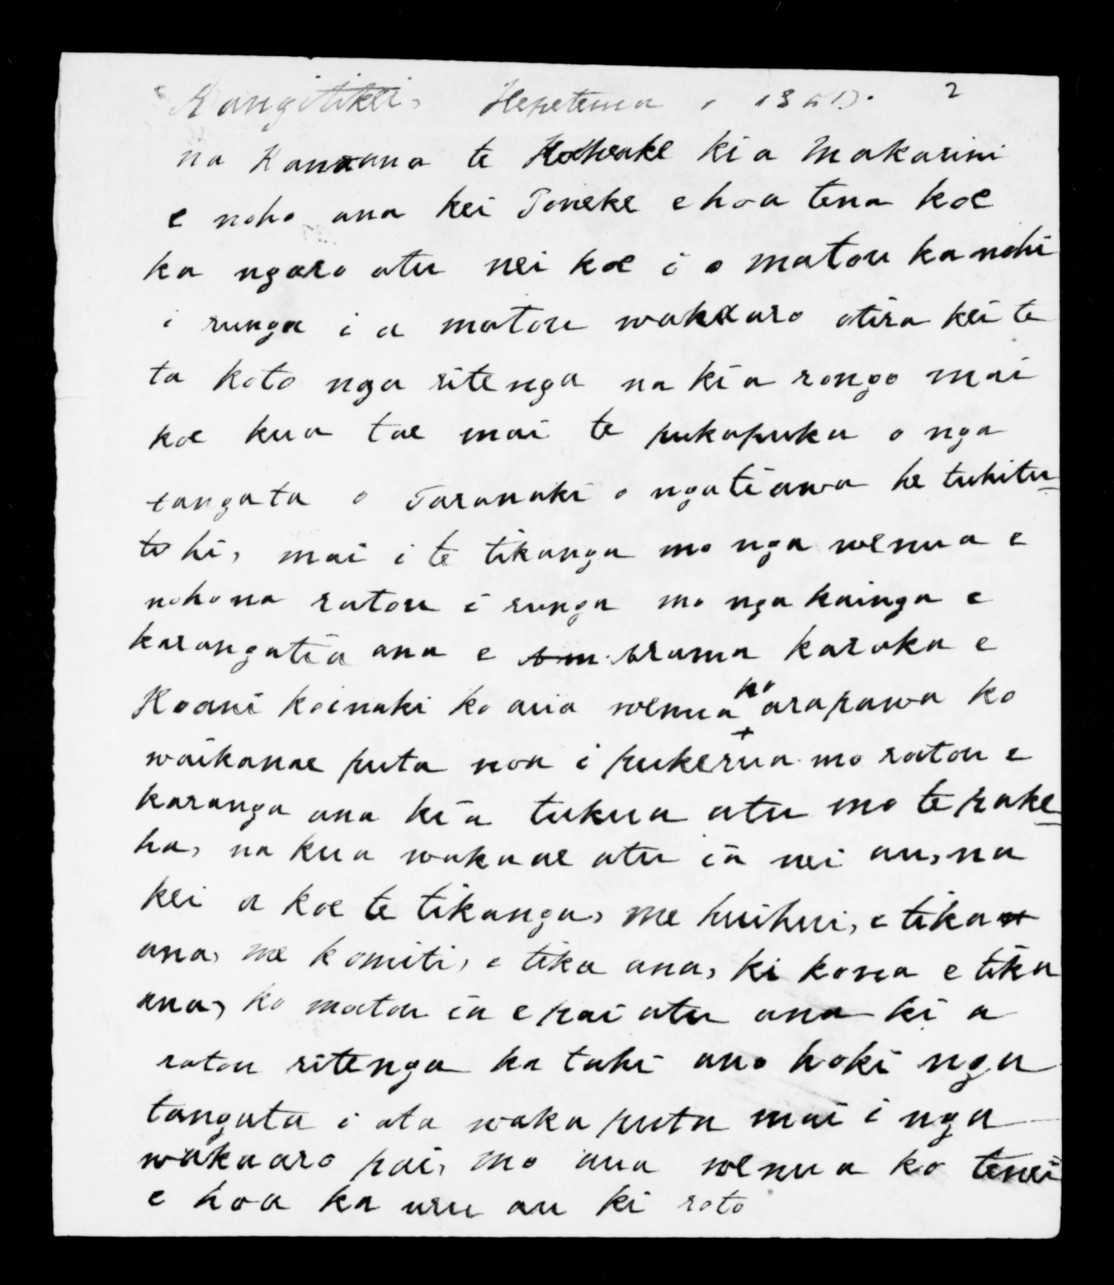 Rangitikei, Hepetema , 2
na Kanana te Hoeheake ki a Makarini
e noho ana kei Poneke e hoa tena koe
ka ngaro atu nei koe i o matou kanohi
i runga i a matou wakaaro otira kei te
ta koto nga ritenga na kia rongo mai
koe kua tae mai te pukapuka o nga
tangata o Taranaki o ngatiawa he tuhitu-
tuhi, mai i te tikanga mo nga wenua e
nohona ratou i runga mo nga kainga e
karangatia ana e wrama karaka e
Hoani koinaki ko aua wenua ko arapawa ko
waikanae puta noa i pukerua mo ratou e
karanga ana kia tukua atu mo te pake-
ha, na kua wakaae atu ia nei au, na
kei a koe te tikanga, me huihui, e tika
ana, me komiti, e tika ana, ki korea e tika
ana, ko matou ia e pai atu ana ki a
ratou ritenga ka tahi ano hoki nga
tangata i ata waka puta mai i nga
wakaaro pai, mo aua wenua ko tenei
e hoa ka uru au ki roto